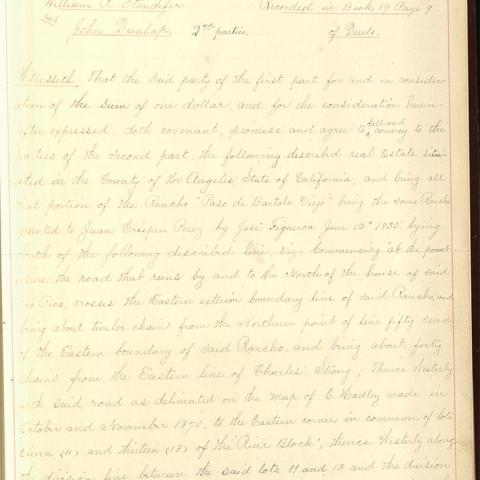 William R. Standifer Recorded in Book 19 Page 9
and
John Dunlap. 2nd parties. of Deeds.
Witnesseth, That the said party of the first part for and in consider-
ation of the sum of one dollar, and for the consideration herein-
after expressed, doth covenant, promise and agree to sell and convey to the
parties of the second part, the following described real Estate situ-
ated in the County of Los Angeles, State of California, and being all
that portion of the Rancho "Paso de Bartolo Viejo" being the same Rancho
granted to Juan Crispen Perez by José Figueroa June 12th 1835, lying
North of the following described line, Viz; Commencing at the point
where the road that runs by and to the North of the house of said
Pio Pico, crosses the Eastern exterior boundary line of said Rancho, and
being about twelve chains from the Northern point of line fifty seven
of the Eastern boundary of said Rancho, and being about forty
chains from the Eastern line of Charles Strong; Thence Westerly
with said road as delineated on the Map of E. Hadley made in
October and November 1870, to the Eastern corner in common of lots
eleven (11) and thirteen (13) of the "River Block", thence Westerly along
the division line between the said lots 11 and 13 and the division